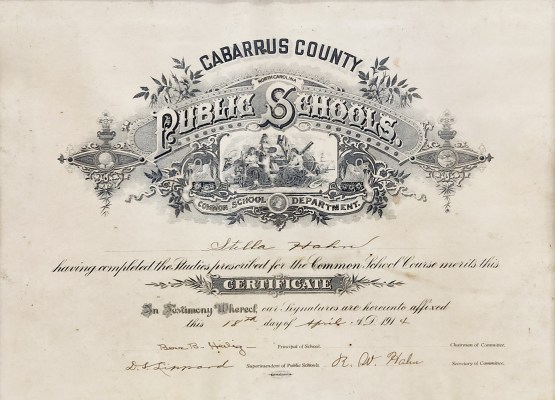 CABARRUS COUNTY
NORTH CAROLINA
PUBLIC SCHOOLS.
COMMON SCHOOL DEPARTMENT.
Stella Hahn
having completed the Studies prescribed for the Common School Course merits this
CERTIFICATE
In Testimony Whereof, our Signatures are hereunto affixed
this 18th day of April A.D. 1914
B. Principal of School. Chairman of Committee.
Superintendent of Public Schools. R. W. Hahn Secretary of Committee.